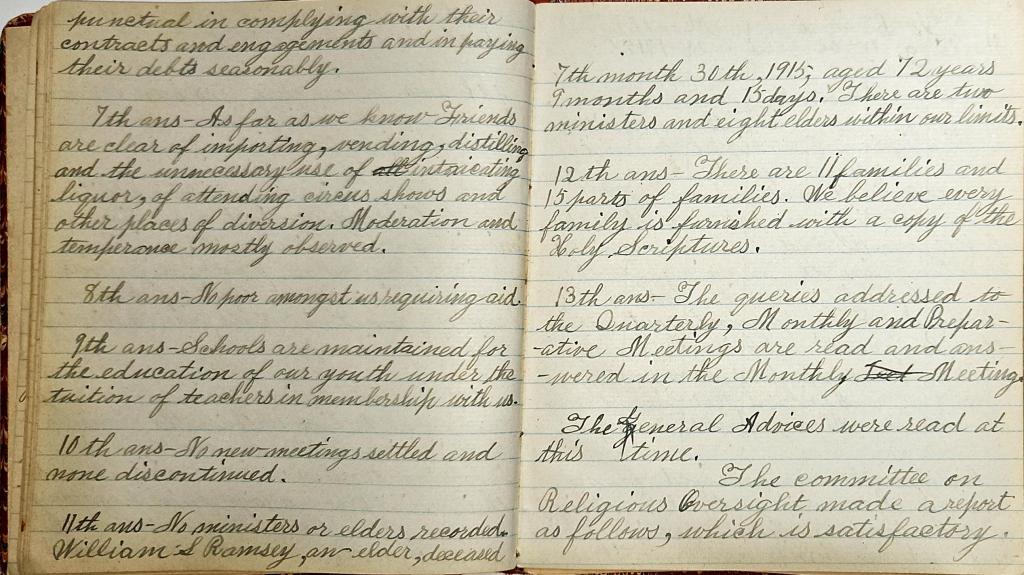 punctual in complying with their
contracts and engagements and in paying
their debts seasonably.
7th ans- As far as we know Friends
are clear of importing, vending, distilling
and the unnecessary use of all intoxicating
liquor, of attending circus shows and
other places of diversion. Moderation and
temperance mostly observed.
8th ans- No poor amongst us requiring aid.
9th ans- Schools are maintained for
the education of our youth under the
tuition of teachers in membership with us.
10th ans- No new meetings settled and
none discontinued.
11th ans- No ministers or elders recorded.
William S Ramsey, an elder, deceased
7th month 30th, 1915, aged 72 years
9 months and 15 days. There are two
ministers and eight elders within our limits.
12th ans- There are 11 families and
15 parts of families. We believe every
family is furnished with a copy of the
Holy Scriptures.
13th ans- The queries addressed to
the Quarterly, Monthly and Prepar-
-ative Meetings are read and ans-
-wered in the Monthly Meeting.
The General Advices were read at
this time.
The committee on
Religious Oversight made a report
as follows, which is satisfactory.